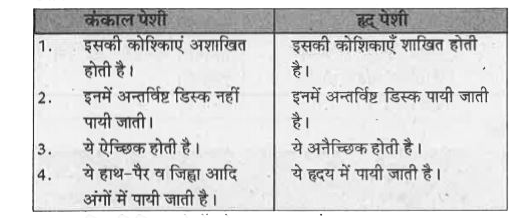 कंकाल पेशी हृद् पेशी
1. इसकी कोश्किाएं अशाखित इसकी कोशिकाएँ शाखित होती
होती है। है।
2. इनमें अन्तर्विष्ट डिस्क नहीं इनमें अन्तर्विष्ट डिस्क पायी जाती
पायी जाती। है।
3. ये ऐच्छिक होती है। ये अनैच्छिक होती है।
4. ये हाथ-पैर व जिह्वा आदि ये हृदय में पायी जाती है।
अंगों में पायी जाती है।